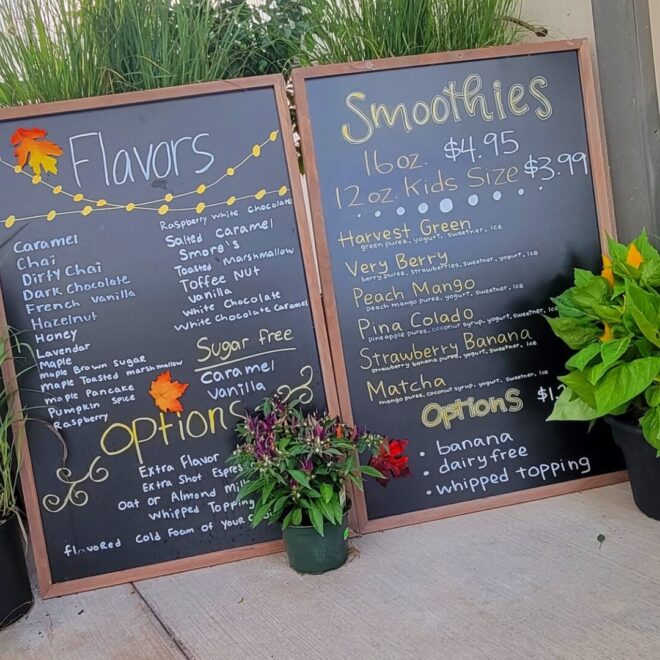 Flavors
Caramel
Chai
Dirty Chai
Dark Chocolate
French Vanilla
Hazelnut
Honey
Lavendar
Maple
Maple Brown Sugar
Maple Toasted Marshmallow
Maple Pancake
Pumpkin Spice
Raspberry
Raspberry White Chocolate
Salted Caramel
Smore's
Toasted Marshmallow
Toffee Nut
Vanilla
White Chocolate
White Chocolate Caramel
Sugar free
Caramel
Vanilla
Options
Extra Flavor
Extra Shot
Oat or Almond
Whipped Topping
Flavored Cold Foam of Your
Smoothies
16oz. $4.95
12oz. Kids Size $3.99
Harvest Green
green puree, yogurt, sweetner, ice
Very Berry
berry puree, strawberries, sweetner, yogurt, ice
Peach Mango
peach mango puree, yogurt, sweetner, ice
Pina Colado
pineapple puree, coconut syrup, yogurt, sweetner, ice
Strawberry Banana
strawberry banana puree, yogurt, sweetner, ice
Matcha
mango puree, coconut syrup, yogurt, sweetner, ice
Options
• banana
• dairy free
• whipped topping